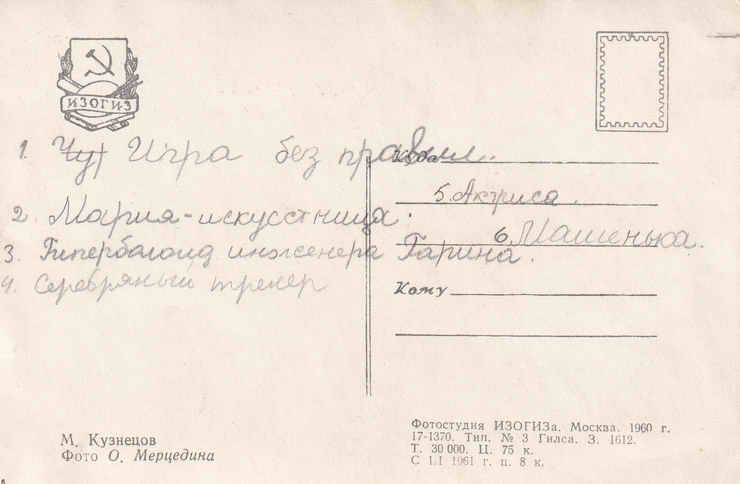 ИЗОГИЗ
1. Чу Игра без правил.
Куда
5. Актриса.
2. Мария-искусстница.
6. Машенька.
3. Гиперболоид инженера Гарина.
4. Серебряный тренер
Кому
М. Кузнецов
Фото О. Мерцедина
Фотостудия ИЗОГИЗа. Москва. 1960 г.
17-1370. Тип. № 3 Гилса. З. 1612.
Т. 30 000. Ц. 75 к.
С 1.I 1961 г. ц. 8 к.